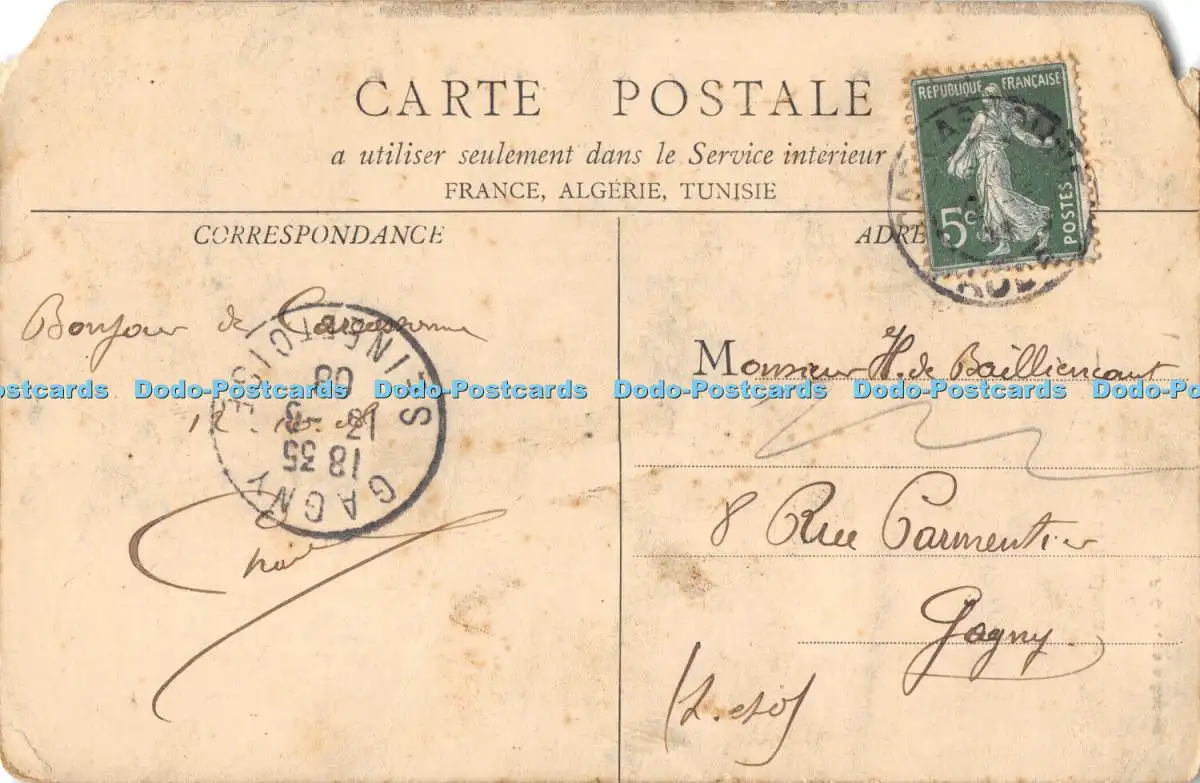 CARTE POSTALE
a utiliser seulement dans le Service intérieur
FRANCE, ALGÉRIE, TUNISIE
REPUBLIQUE FRANÇAISE
5c
POSTES
CORRESPONDANCE
ADRE
Bonjour de Carcassonne
GAGNY
18 35
08
Monsieur H. de Bailliencourt
8 Rue Parmentier
Gagny
(S. et O)
Dodo-Postcards Dodo-Postcards Dodo-Postcards Dodo-Postcards Dodo-Postcards